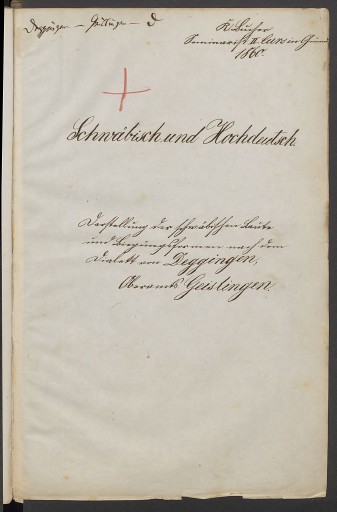 Deggingen – Geislingen – d
K. Bucher
Seminarist II. Curs in Gmünd
1860.
Schwäbisch und Hochdeutsch.
Darstellung der schwäbischen Laute
und Biegungsformen nach dem
Dialekt von Deggingen,
Oberamts Geislingen.